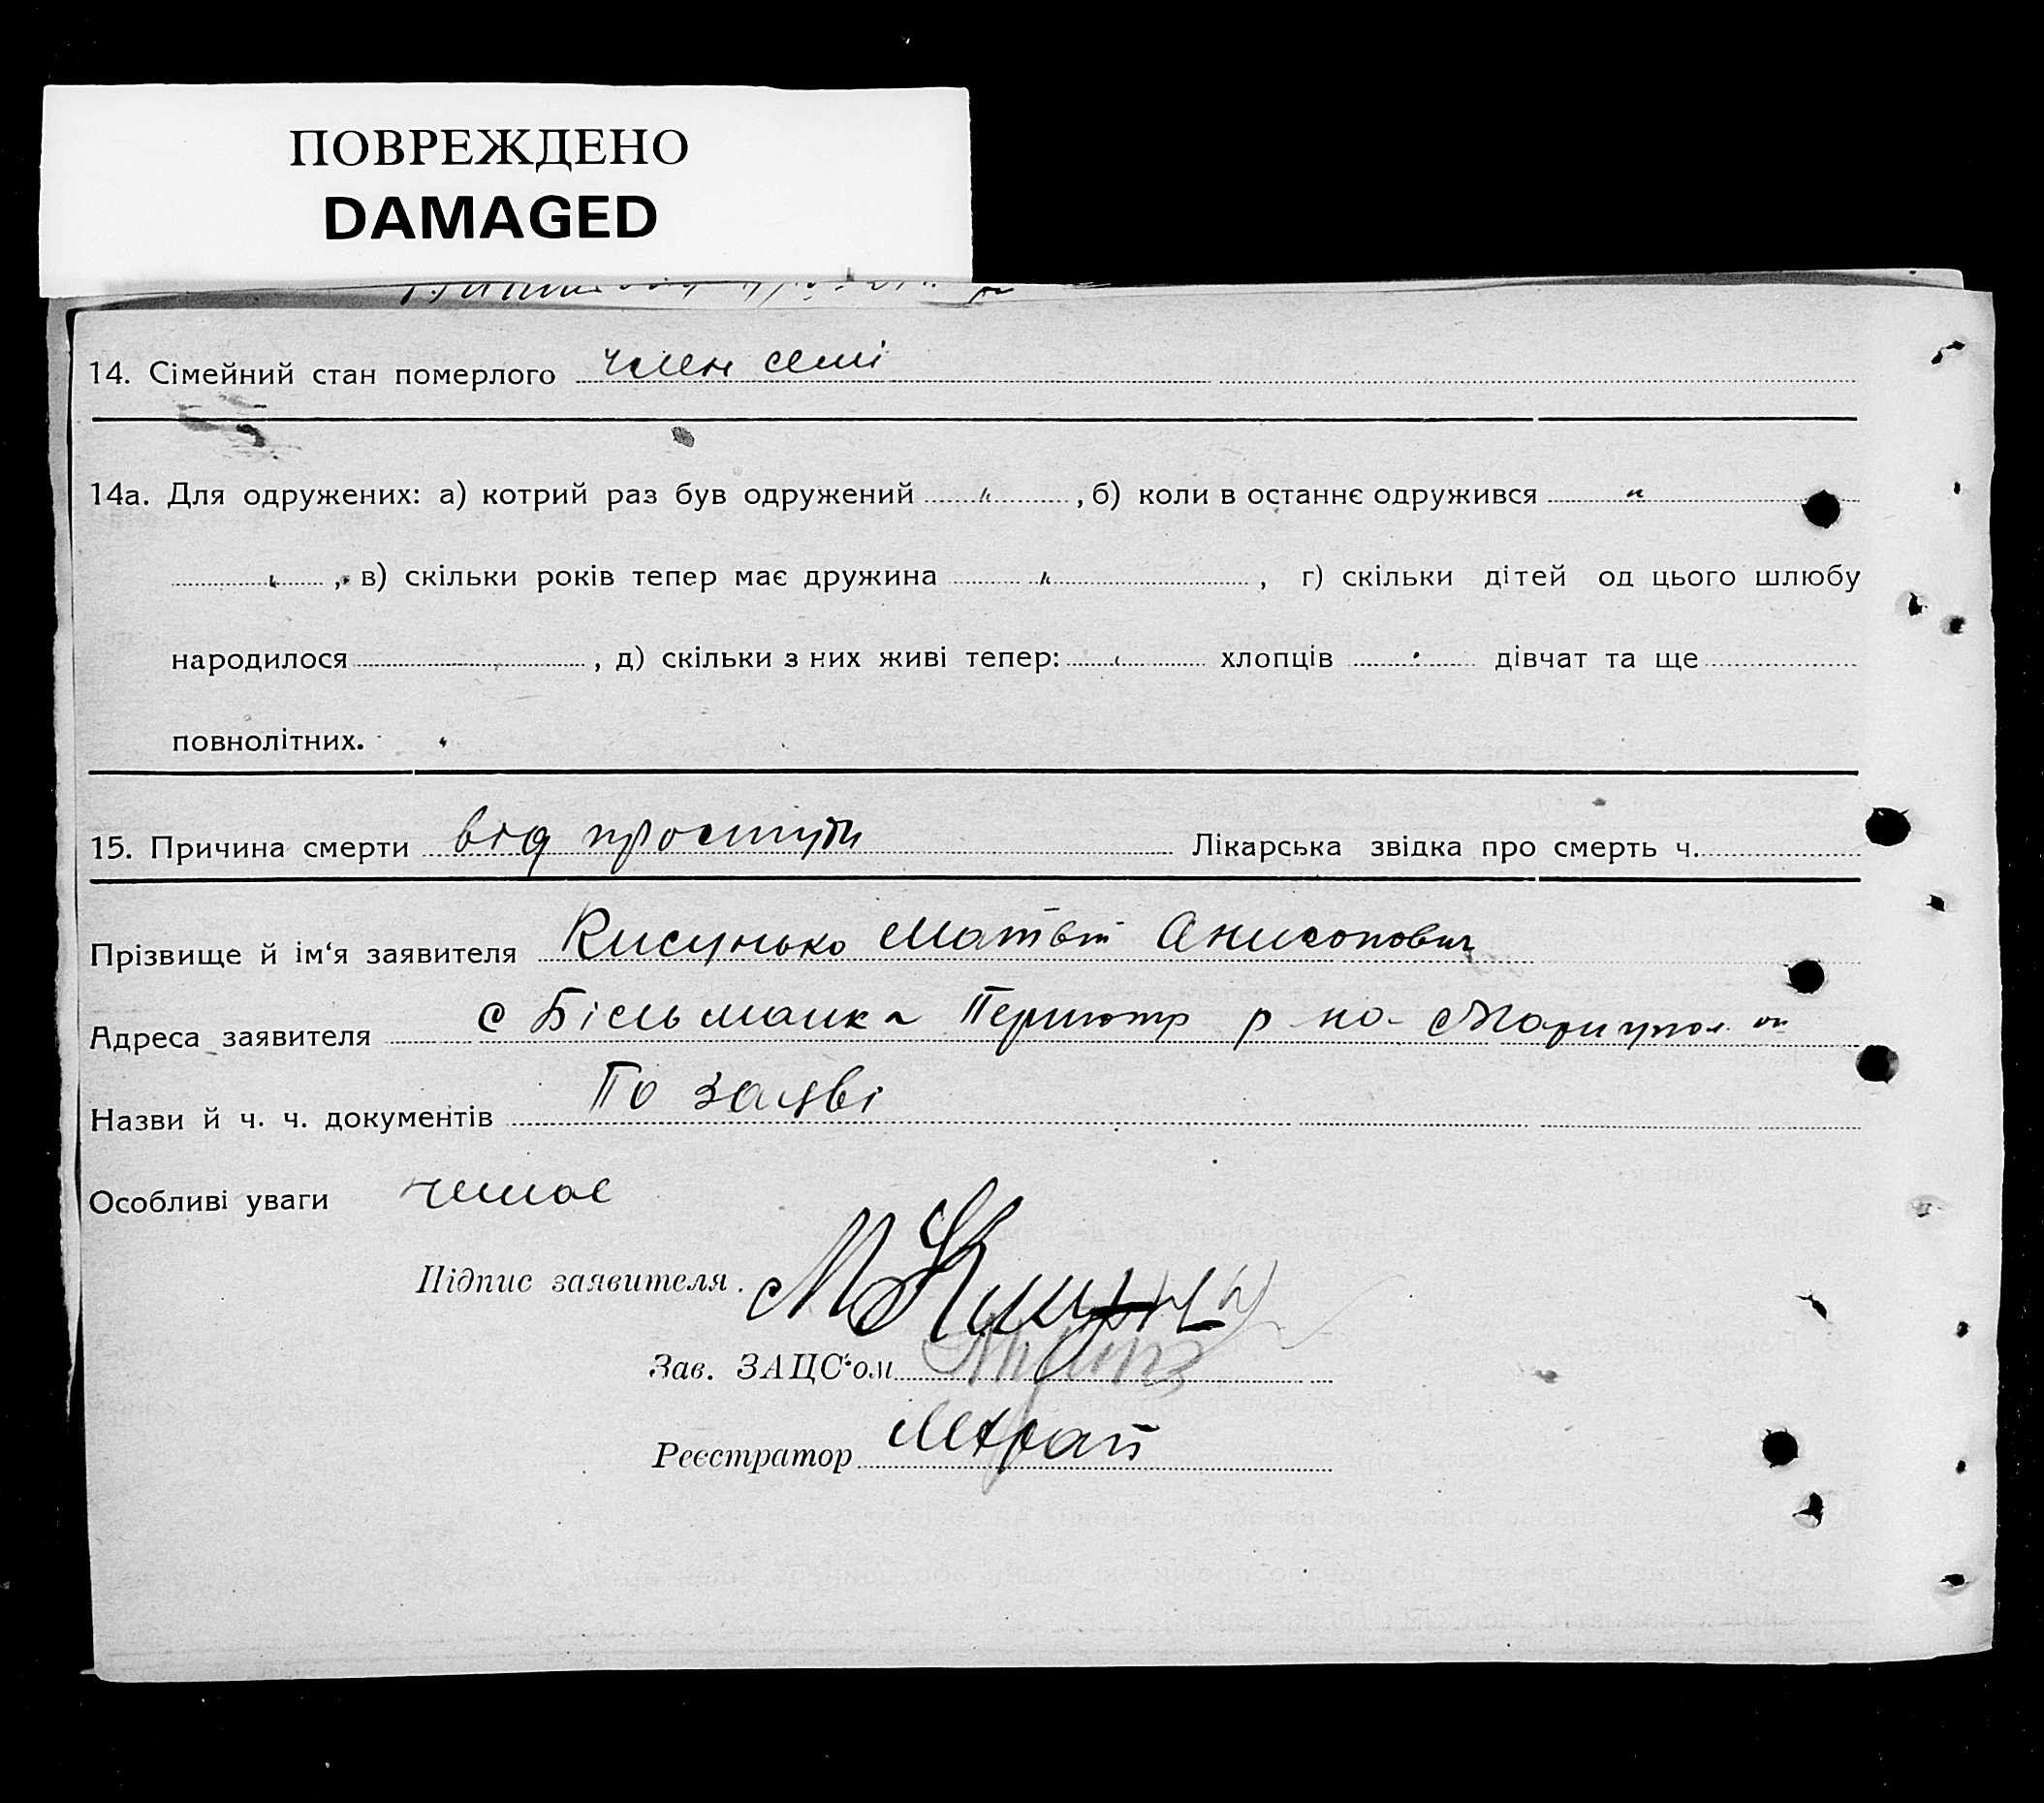 ПОВРЕЖДЕНО
DAMAGED
14. Сімейний стан померлого член семі
14а. Для одружених: а) котрий раз був одружений " , б) коли в останнє одружився "
" , в) скільки років тепер має дружина " , г) скільки дітей од цього шлюбу
народилося , д) скільки з них живі тепер: " хлопців " дівчат та ще
повнолітних. "
15. Причина смерти від простути Лікарська звідка про смерть ч.
Прізвище й ім'я заявителя Кисунько Матвій Онисопович
Адреса заявителя с Більманка р-на Маріупол ок
Назви й ч. ч. документів По заяві
Особливі уваги немає
Підпис заявителя.
Зав. ЗАЦС'ом
Реєстратор